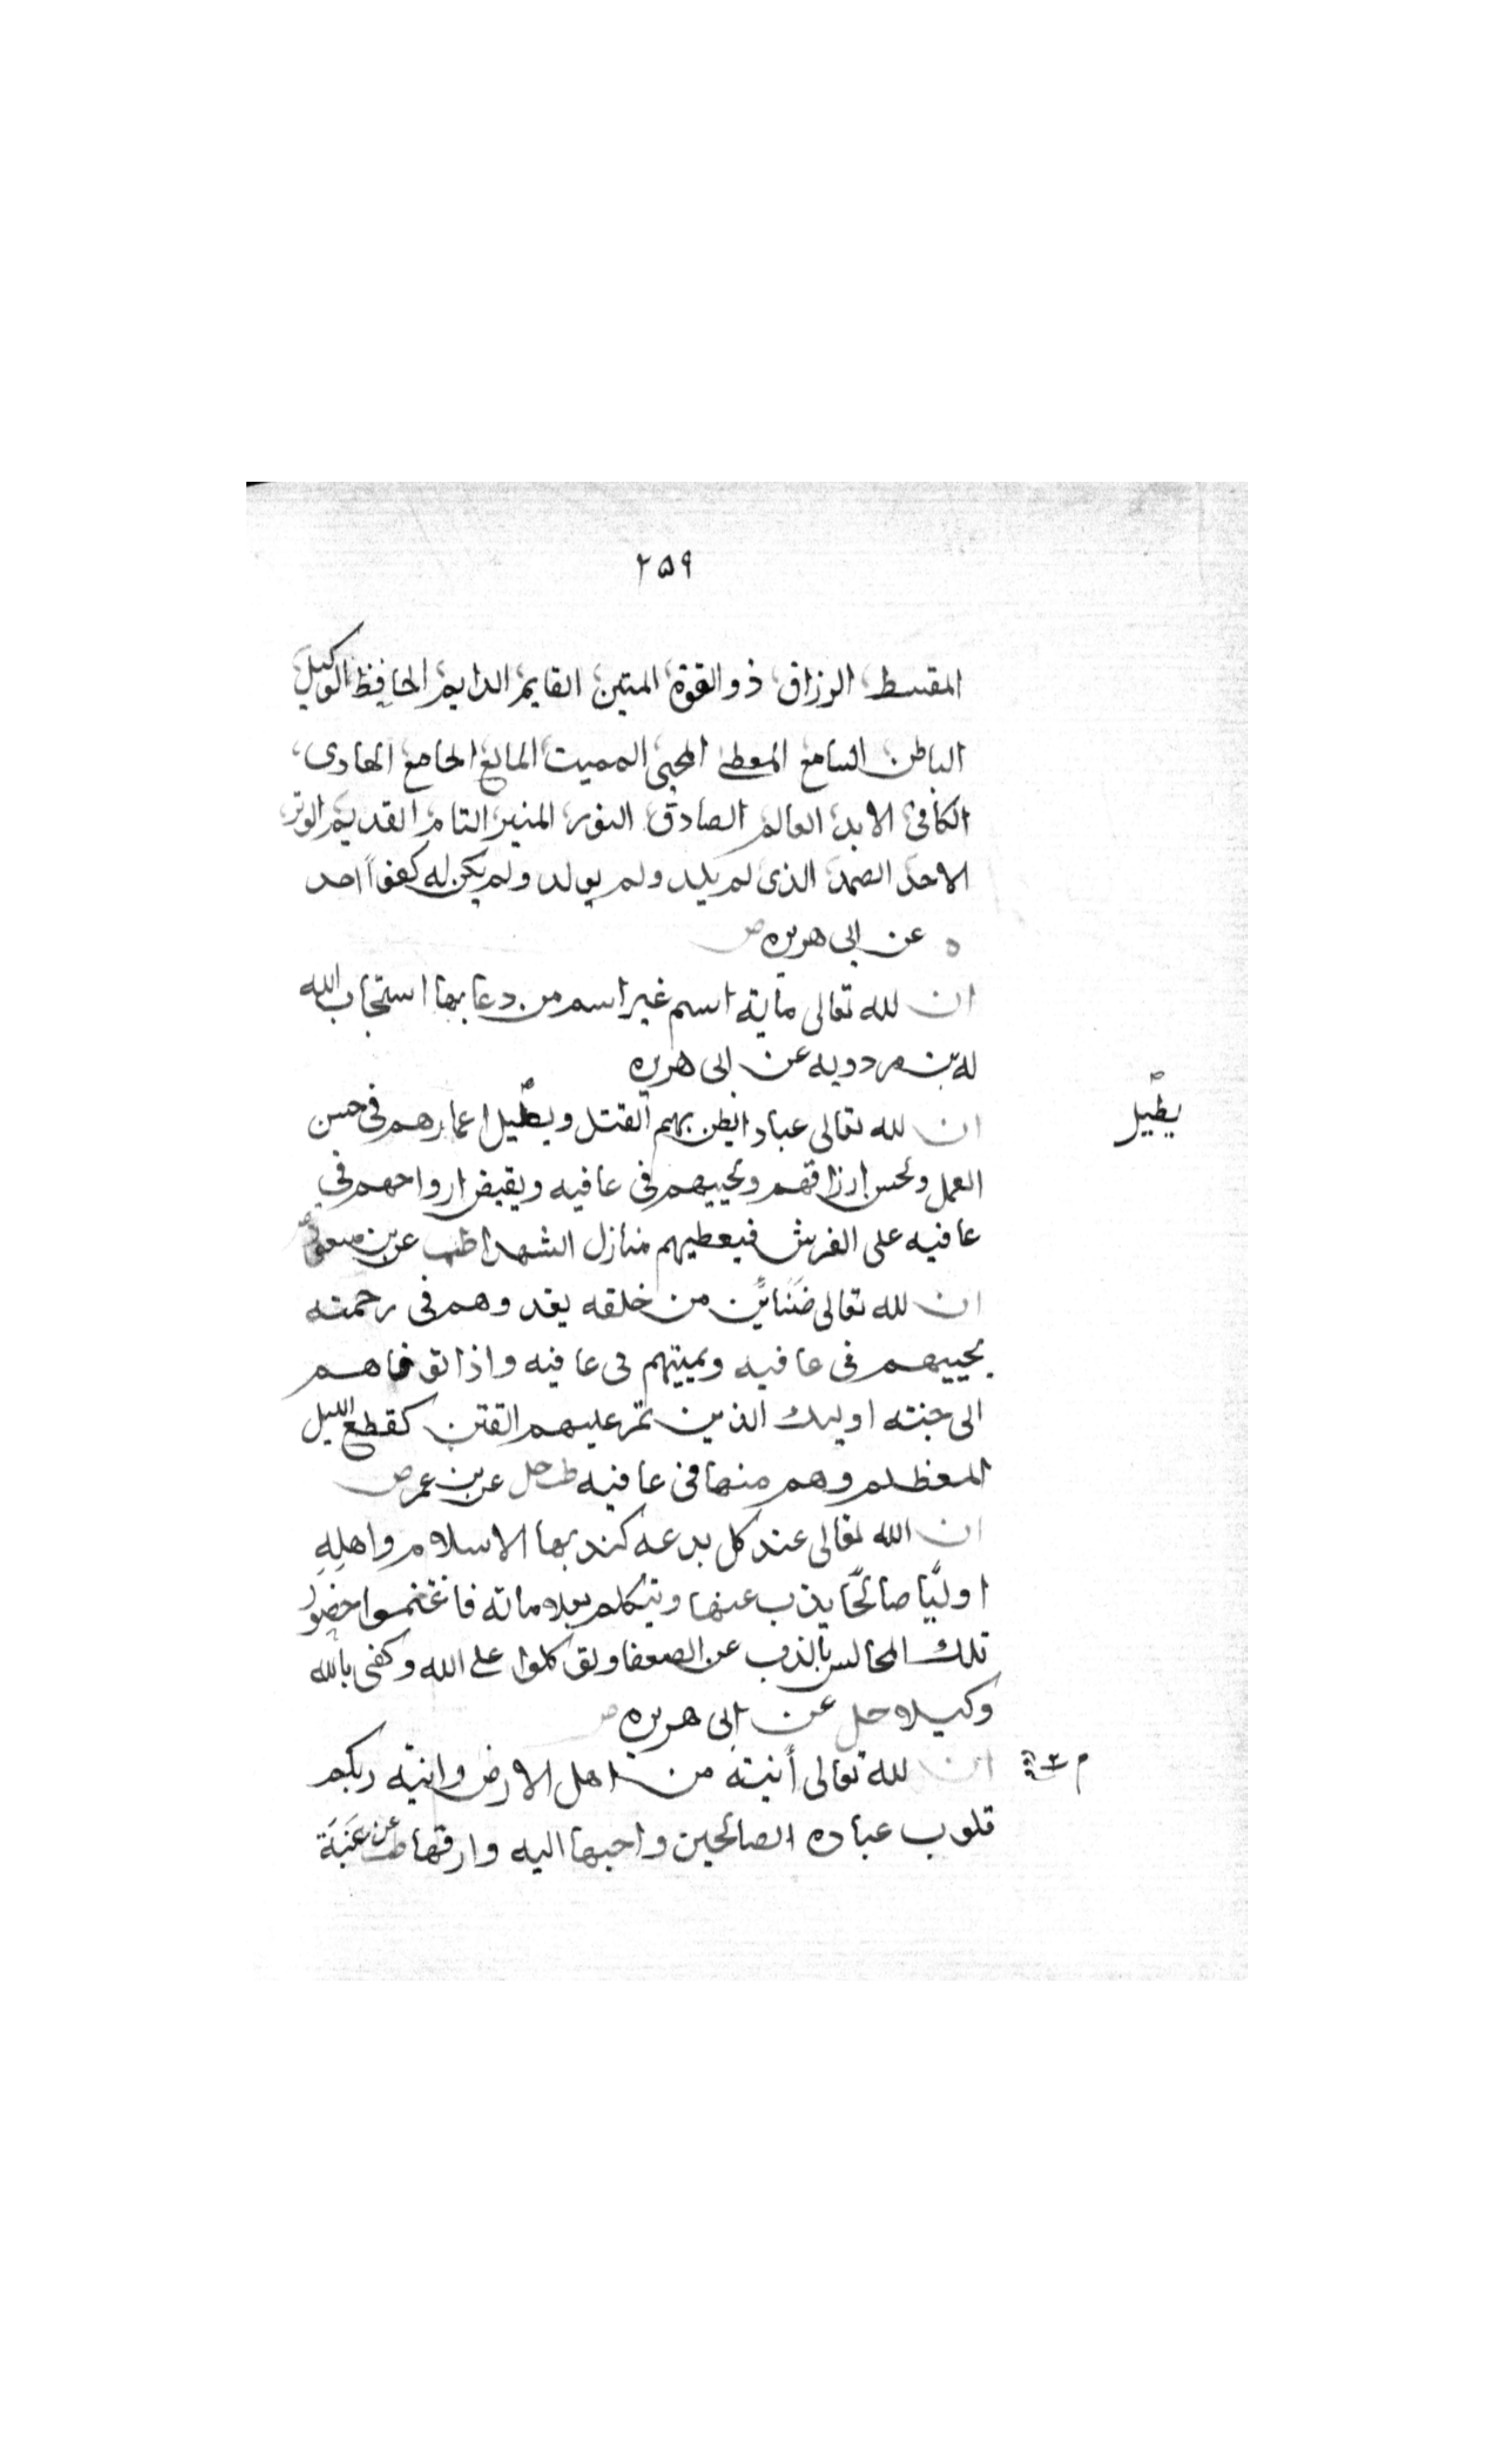 ٢٥٩
المقسط، الرزاق، ذو القوة، المتين، القايم، الدايم، الحافظ، الوكيل،
الباطن، السامع، المعطى، المحيى، المميت، المانع، الجامع، الهادى،
الكافى، الابد، العالم، الصادق، النور، المنير، التام، القديم، الوتر،
الاحد، الصمد، الذى لم يلد ولم يولد ولم يكن له كفوًا احد
ه عن ابى هريره ض
ان لله تعالى ماية اسم غير اسم من دعا بها استجاب الله
له بن مردويه عن ابى هريره
ان لله تعالى عبادا يظن بهم القتل ويطيل اعمارهم فى حسن
يطيل
العمل ويحسن ارزاقهم ويحييهم فى عافيه ويقبض ارواحهم فى
عافيه على الفرش فيعطيهم منازل الشهدا طب عن بن مسعود
ان لله تعالى ضَنَاين من خلقه يغدوهم فى رحمته
يحييهم فى عافيه ويميتهم فى عافيه واذا توفاهم
الى جنته اوليك الذين تمر عليهم الفتن كقطع الليل
المظلم وهم منها فى عافيه طب حل عن بن عمر ض
ان الله تعالى عند كل بدعه كيد بها الاسلام واهلِهِ
اوليًا صالحًا يذب عنها ويتكلم بعلاماته فاغتنموا حضور
تلك المجالس بالذب عن الضعفا وتوكلوا على الله وكفى بالله
وكيلا حل عن ابى هريره ض
ان لله تعالى أنية من اهل الارض وانية ربكم
قلوب عباده الصالحين واحبها اليه وارقها طب عن عنبَة